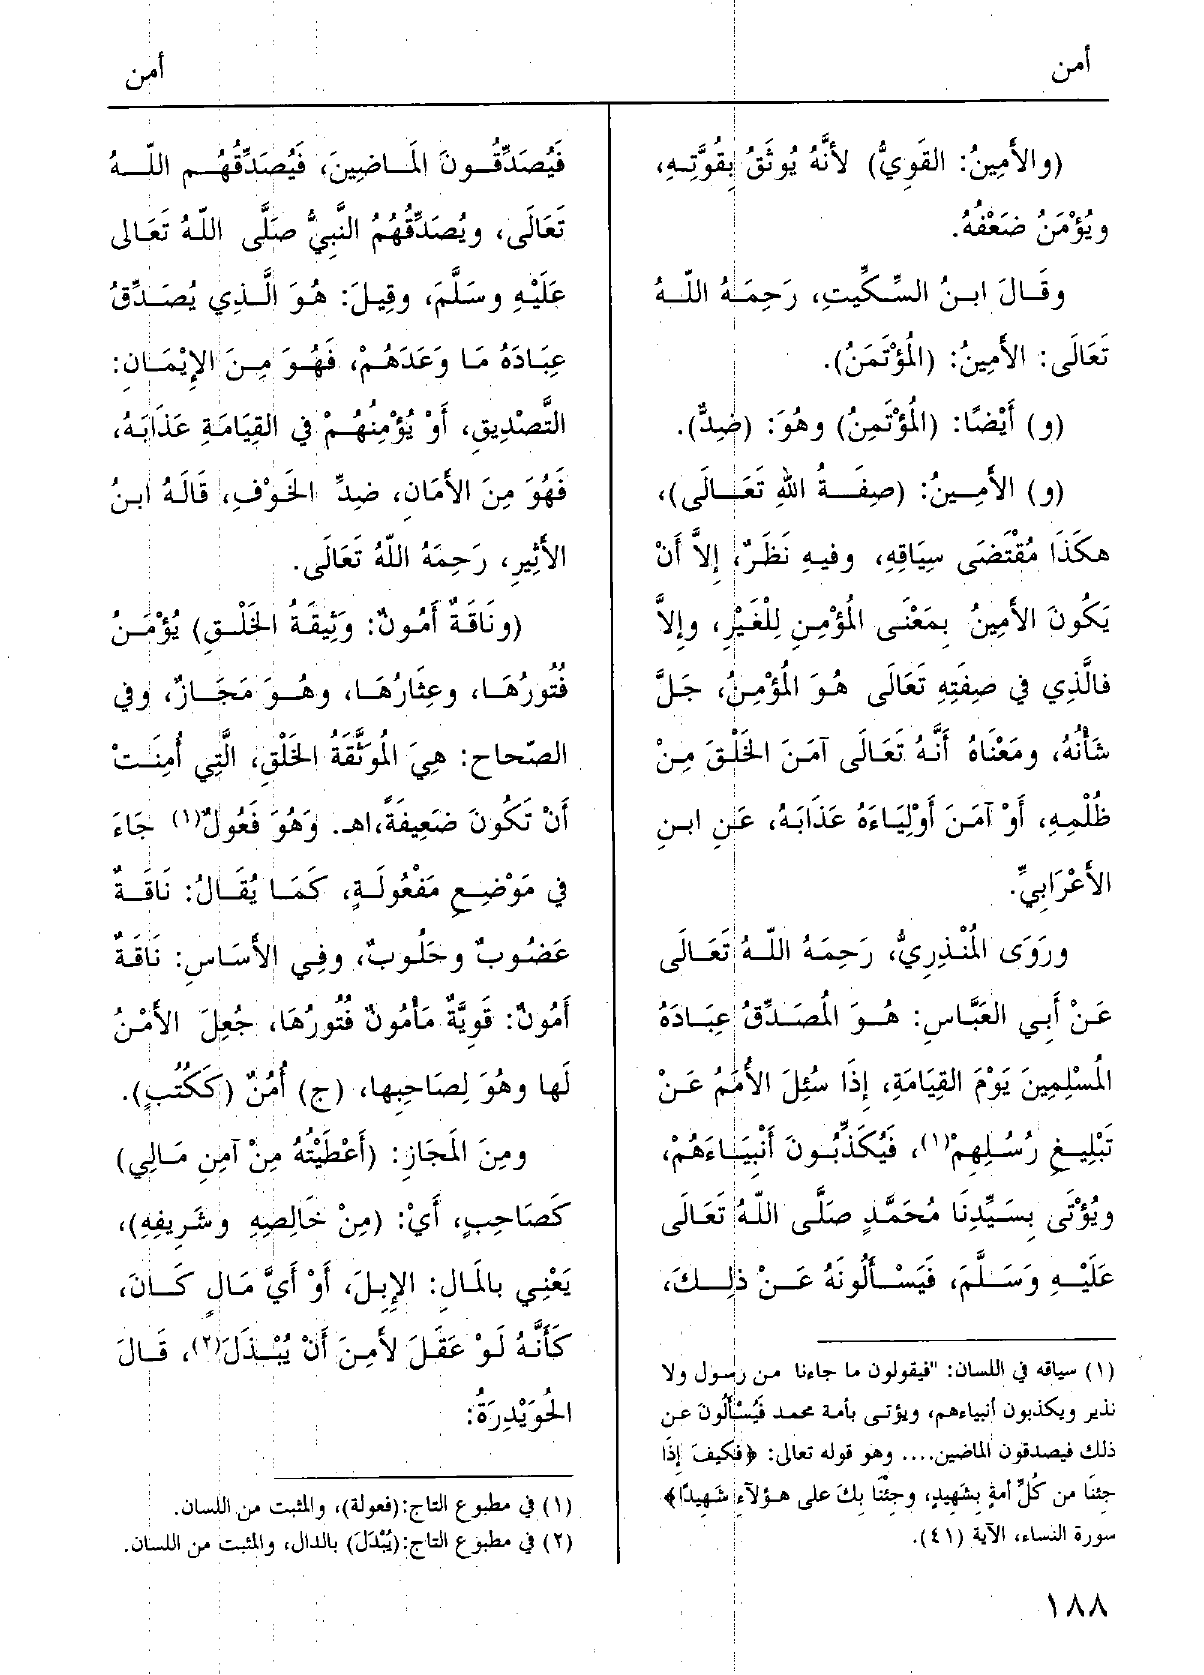 أمن
أمن
(والأَمِينُ: القَوِيُّ) لأنَّهُ يُوثَقُ بِقُوَّتِهِ،
ويُؤْمَنُ ضَعْفُهُ.
وقَالَ ابنُ السِّكِّيتِ، رَحِمَهُ اللّهُ
تَعَالَى: الأَمِينُ: (المُؤْتَمَنُ).
(و) أَيْضًا: (المُؤْتَمِنُ) وهُوَ: (ضِدٌّ).
(و) الأَمِينُ: (صِفَةُ اللهِ تَعَالَى)،
هكَذَا مُقْتَضَى سِيَاقِهِ، وفيهِ نَظَرٌ، إلاَّ أَنْ
يَكُونَ الأَمِينُ بِمَعْنَى المُؤْمِنِ لِلْغَيْرِ، وإلاَّ
فالَّذِي في صِفَتِهِ تَعَالَى هُوَ المُؤْمِنُ، جَلَّ
شَأْنُهُ، ومَعْنَاهُ أَنَّهُ تَعَالَى آمَنَ الخَلْقَ مِنْ
ظُلْمِهِ، أَوْ آمَنَ أَوْلِيَاءَهُ عَذَابَهُ، عَنِ ابنِ
الأَعْرَابِيِّ.
ورَوَى المُنْذِرِيُّ، رَحِمَهُ اللّهُ تَعَالَى
عَنْ أَبي العَبَّاسِ: هُوَ المُصَدِّقُ عِبَادَهُ
المُسْلِمِينَ يَوْمَ القِيَامَةِ، إذَا سُئِلَ الأُمَمُ عَنْ
تَبْلِيغِ رُسُلِهِمْ(١)، فَيُكَذِّبُونَ أَنْبِيَاءَهُمْ،
ويُؤْتَى بِسَيِّدِنَا مُحَمَّدٍ صَلَّى اللّهُ تَعَالَى
عَلَيْهِ وَسَلَّمَ، فَيَسْأَلُونَهُ عَنْ ذلِكَ،
(١) سياقه في اللسان: "فيقولون ما جاءنا من رسول ولا
نذير ويكذبون أنبياءهم، ويؤتى بأمة محمد فَيُسْأَلُونَ عن
ذلك فيصدقون الماضين.... وهو قوله تعالى: ﴿فكيفَ إذَا
جِئنَا من كُلِّ أمةٍ بِشَهِيدٍ، وجِئْنَا بِكَ على هؤلآءِ شَهِيدًا﴾
سورة النساء، الآية (٤١).
فَيُصَدِّقُونَ المَاضِينَ، فَيُصَدِّقُهُم اللّهُ
تَعَالَى، ويُصَدِّقُهُمُ النَّبِيُّ صَلَّى اللّهُ تَعَالى
عَلَيْهِ وسَلَّمَ، وقِيلَ: هُوَ الَّذِي يُصَدِّقُ
عِبَادَهُ مَا وَعَدَهُمْ، فَهُوَ مِنَ الإِيْمَانِ:
التَّصْدِيقِ، أَوْ يُؤْمِنُهُمْ في القِيَامَةِ عَذَابَهُ،
فَهُوَ مِنَ الأَمَانِ، ضِدِّ الخَوْفِ، قَالَهُ ابنُ
الأَثِيرِ، رَحِمَهُ اللّهُ تَعَالَى.
(ونَاقَةٌ أَمُونٌ: وَثِيقَةُ الخَلْقِ) يُؤْمَنُ
فُتُورُهَا، وعِثَارُهَا، وهُوَ مَجَازٌ، وفي
الصّحاح: هِيَ المُوَثَّقَةُ الخَلْقِ، الَّتِي أُمِنَتْ
أَنْ تَكُونَ ضَعِيفَةً،اهـ. وَهُوَ فَعُولٌ(١) جَاءَ
في مَوْضِعِ مَفْعُولَةٍ، كَمَا يُقَالُ: نَاقَةٌ
عَضُوبٌ وحَلُوبٌ، وفِي الأَسَاسِ: نَاقَةٌ
أَمُونٌ: قَوِيَّةٌ مَأْمُونٌ فُتُورُهَا، جُعِلَ الأَمْنُ
لَها وهُوَ لِصَاحِبِها، (ج) أُمُنٌ (كَكُتُبٍ).
ومِنَ المَجَازِ: (أَعْطَيْتُهُ مِنْ آمِنِ مَالِي)
كَصَاحِبٍ، أَيْ: (مِنْ خَالِصِهِ وشَرِيفِهِ)،
يَعْنِي بالمَالِ: الإِبِلَ، أَوْ أَيَّ مَالٍ كَانَ،
كَأَنَّهُ لَوْ عَقَلَ لأَمِنَ أَنْ يُبْذَلَ(٢)، قَالَ
الحُوَيْدِرَةُ:
(١) في مطبوع التاج:(فعولة)، والمثبت من اللسان.
(٢) في مطبوع التاج:(يُبْدَلَ) بالدال، والمثبت من اللسان.
١٨٨